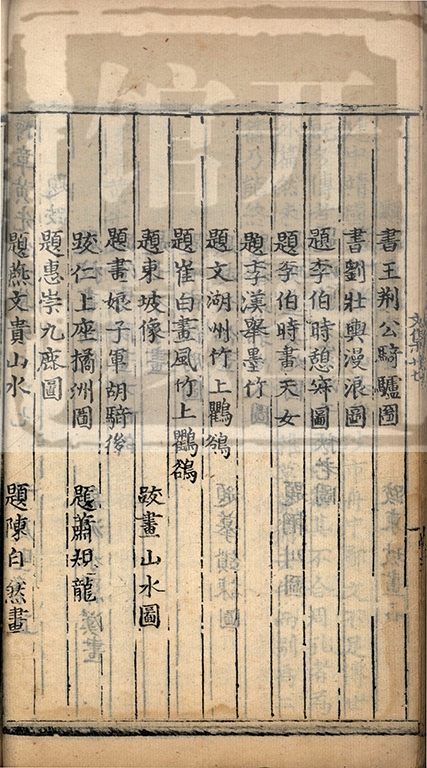 書王荆公騎驢圖
書劉壯輿漫浪圖
題李伯時憩寂圖
題李伯時畫天女
題李漢舉墨竹
題文湖州竹上鸜鵒
題崔白畫風竹上鸜鵒
題東坡像 跋畫山水圖
題畫娘子軍胡騎後
跋仁上座橘洲圖 題蕭規龍
題惠崇九鹿圖
題燕文貴山水 題陳自然畫